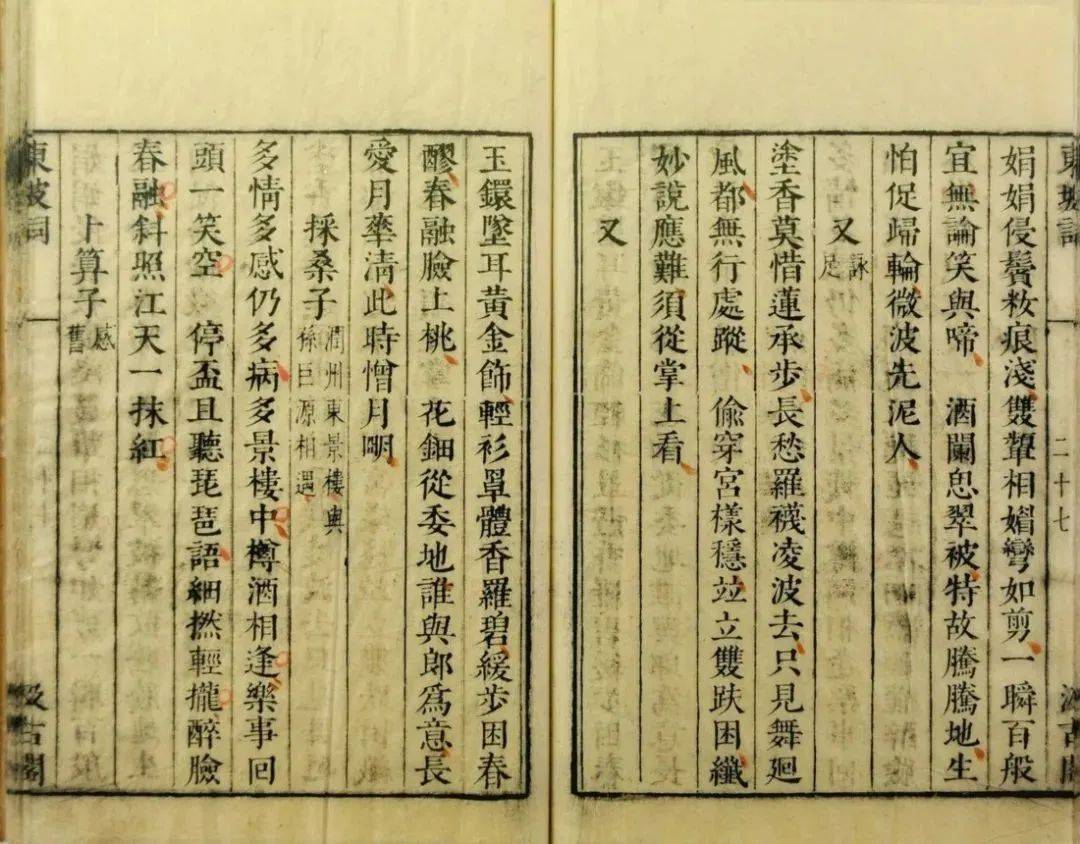 東坡詞
二十七
娟娟侵鬢敉痕淺雙顰相媚彎如剪一瞬百般
宜無論笑與啼 酒闌思翠被特故騰騰地生
怕促歸輪微波先泥人
又 詠足
塗香莫惜蓮承步長愁羅襪凌波去只見舞廻
風都無行處蹤 偷穿宮樣穩竝立雙趺困纖
妙說應難須從掌上看
又
玉鐶墜耳黃金飾輕衫罩體香羅碧緩步困春
醪春融臉上桃 花鈿從委地誰與郎爲意長
愛月華淸此時憎月明
採桑子 潤州東景樓與
孫巨源相遇
多情多感仍多病多景樓中樽酒相逢樂事回
頭一笑空 停盃且聽琵琶語細撚輕攏醉臉
春融斜照江天一抹紅
卜算子 感舊
東坡詞
汲古閣